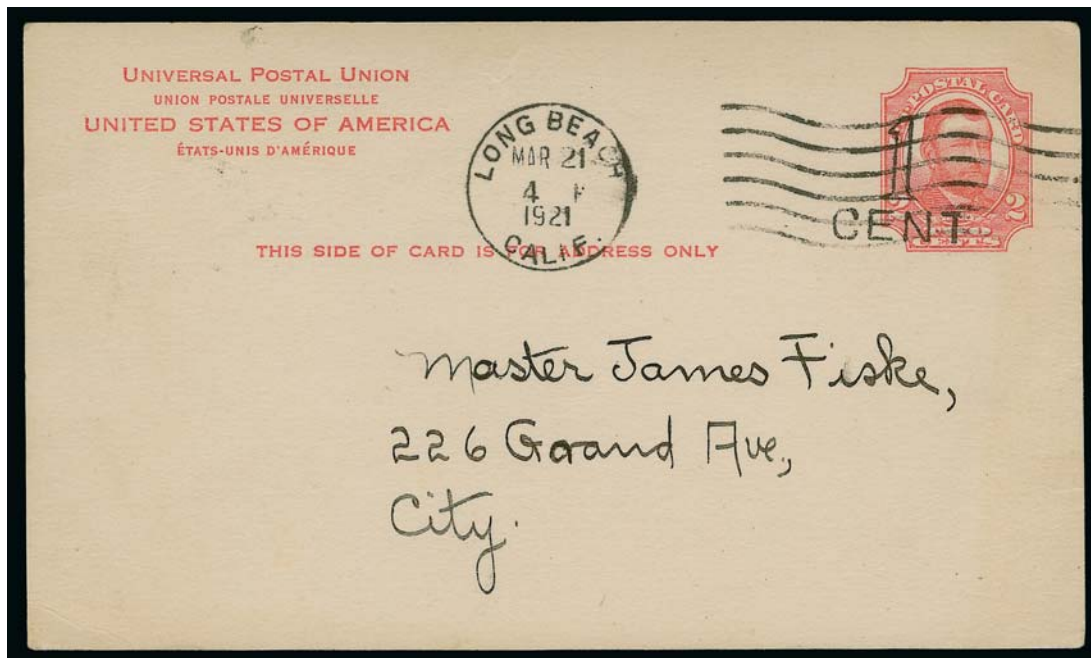 UNIVERSAL POSTAL UNION
UNION POSTALE UNIVERSELLE
UNITED STATES OF AMERICA
ÉTATS-UNIS D'AMÉRIQUE
LONG BEACH
MAR 21
4 P
1921
CALIF.
POSTAL CARD
1
CENT
2
CENTS
THIS SIDE OF CARD IS FOR ADDRESS ONLY
Master James Fiske,
226 Grand Ave,
City.